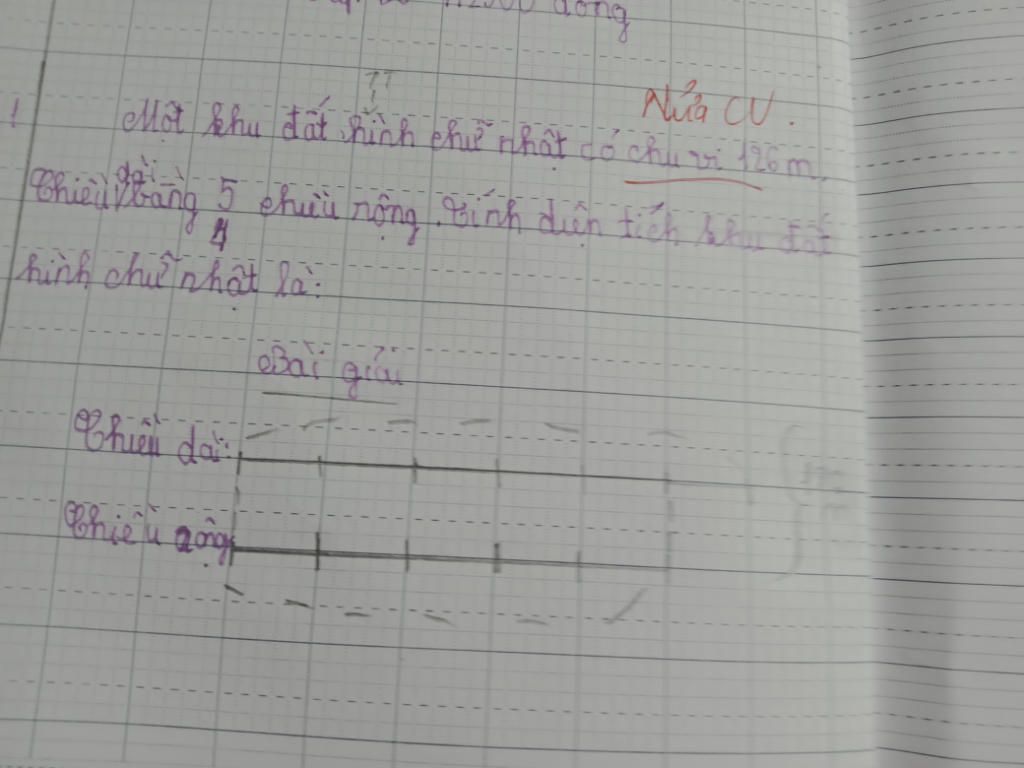 đồng
Nửa CV.
1 Một khu đất hình chữ nhật có chu vi 126 m,
Chiều dài bằng 5/4 chiều rộng. Tính diện tích khu đất
hình chữ nhật là:
Bài giải
Chiều dài:
Chiều rộng